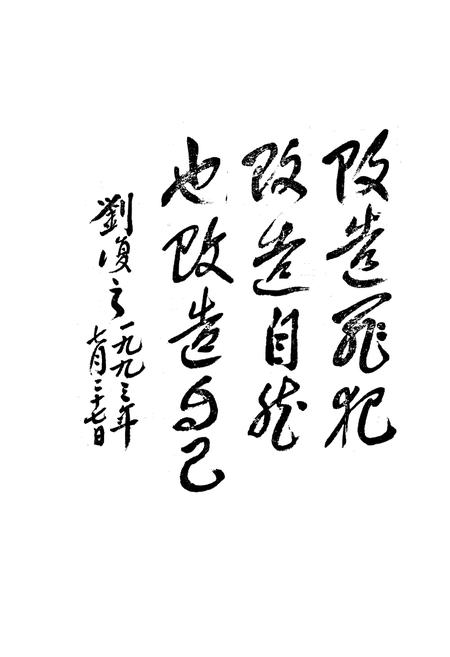 改造罪犯
改造自然
也改造自己
劉復之一九九三年
七月二十七日